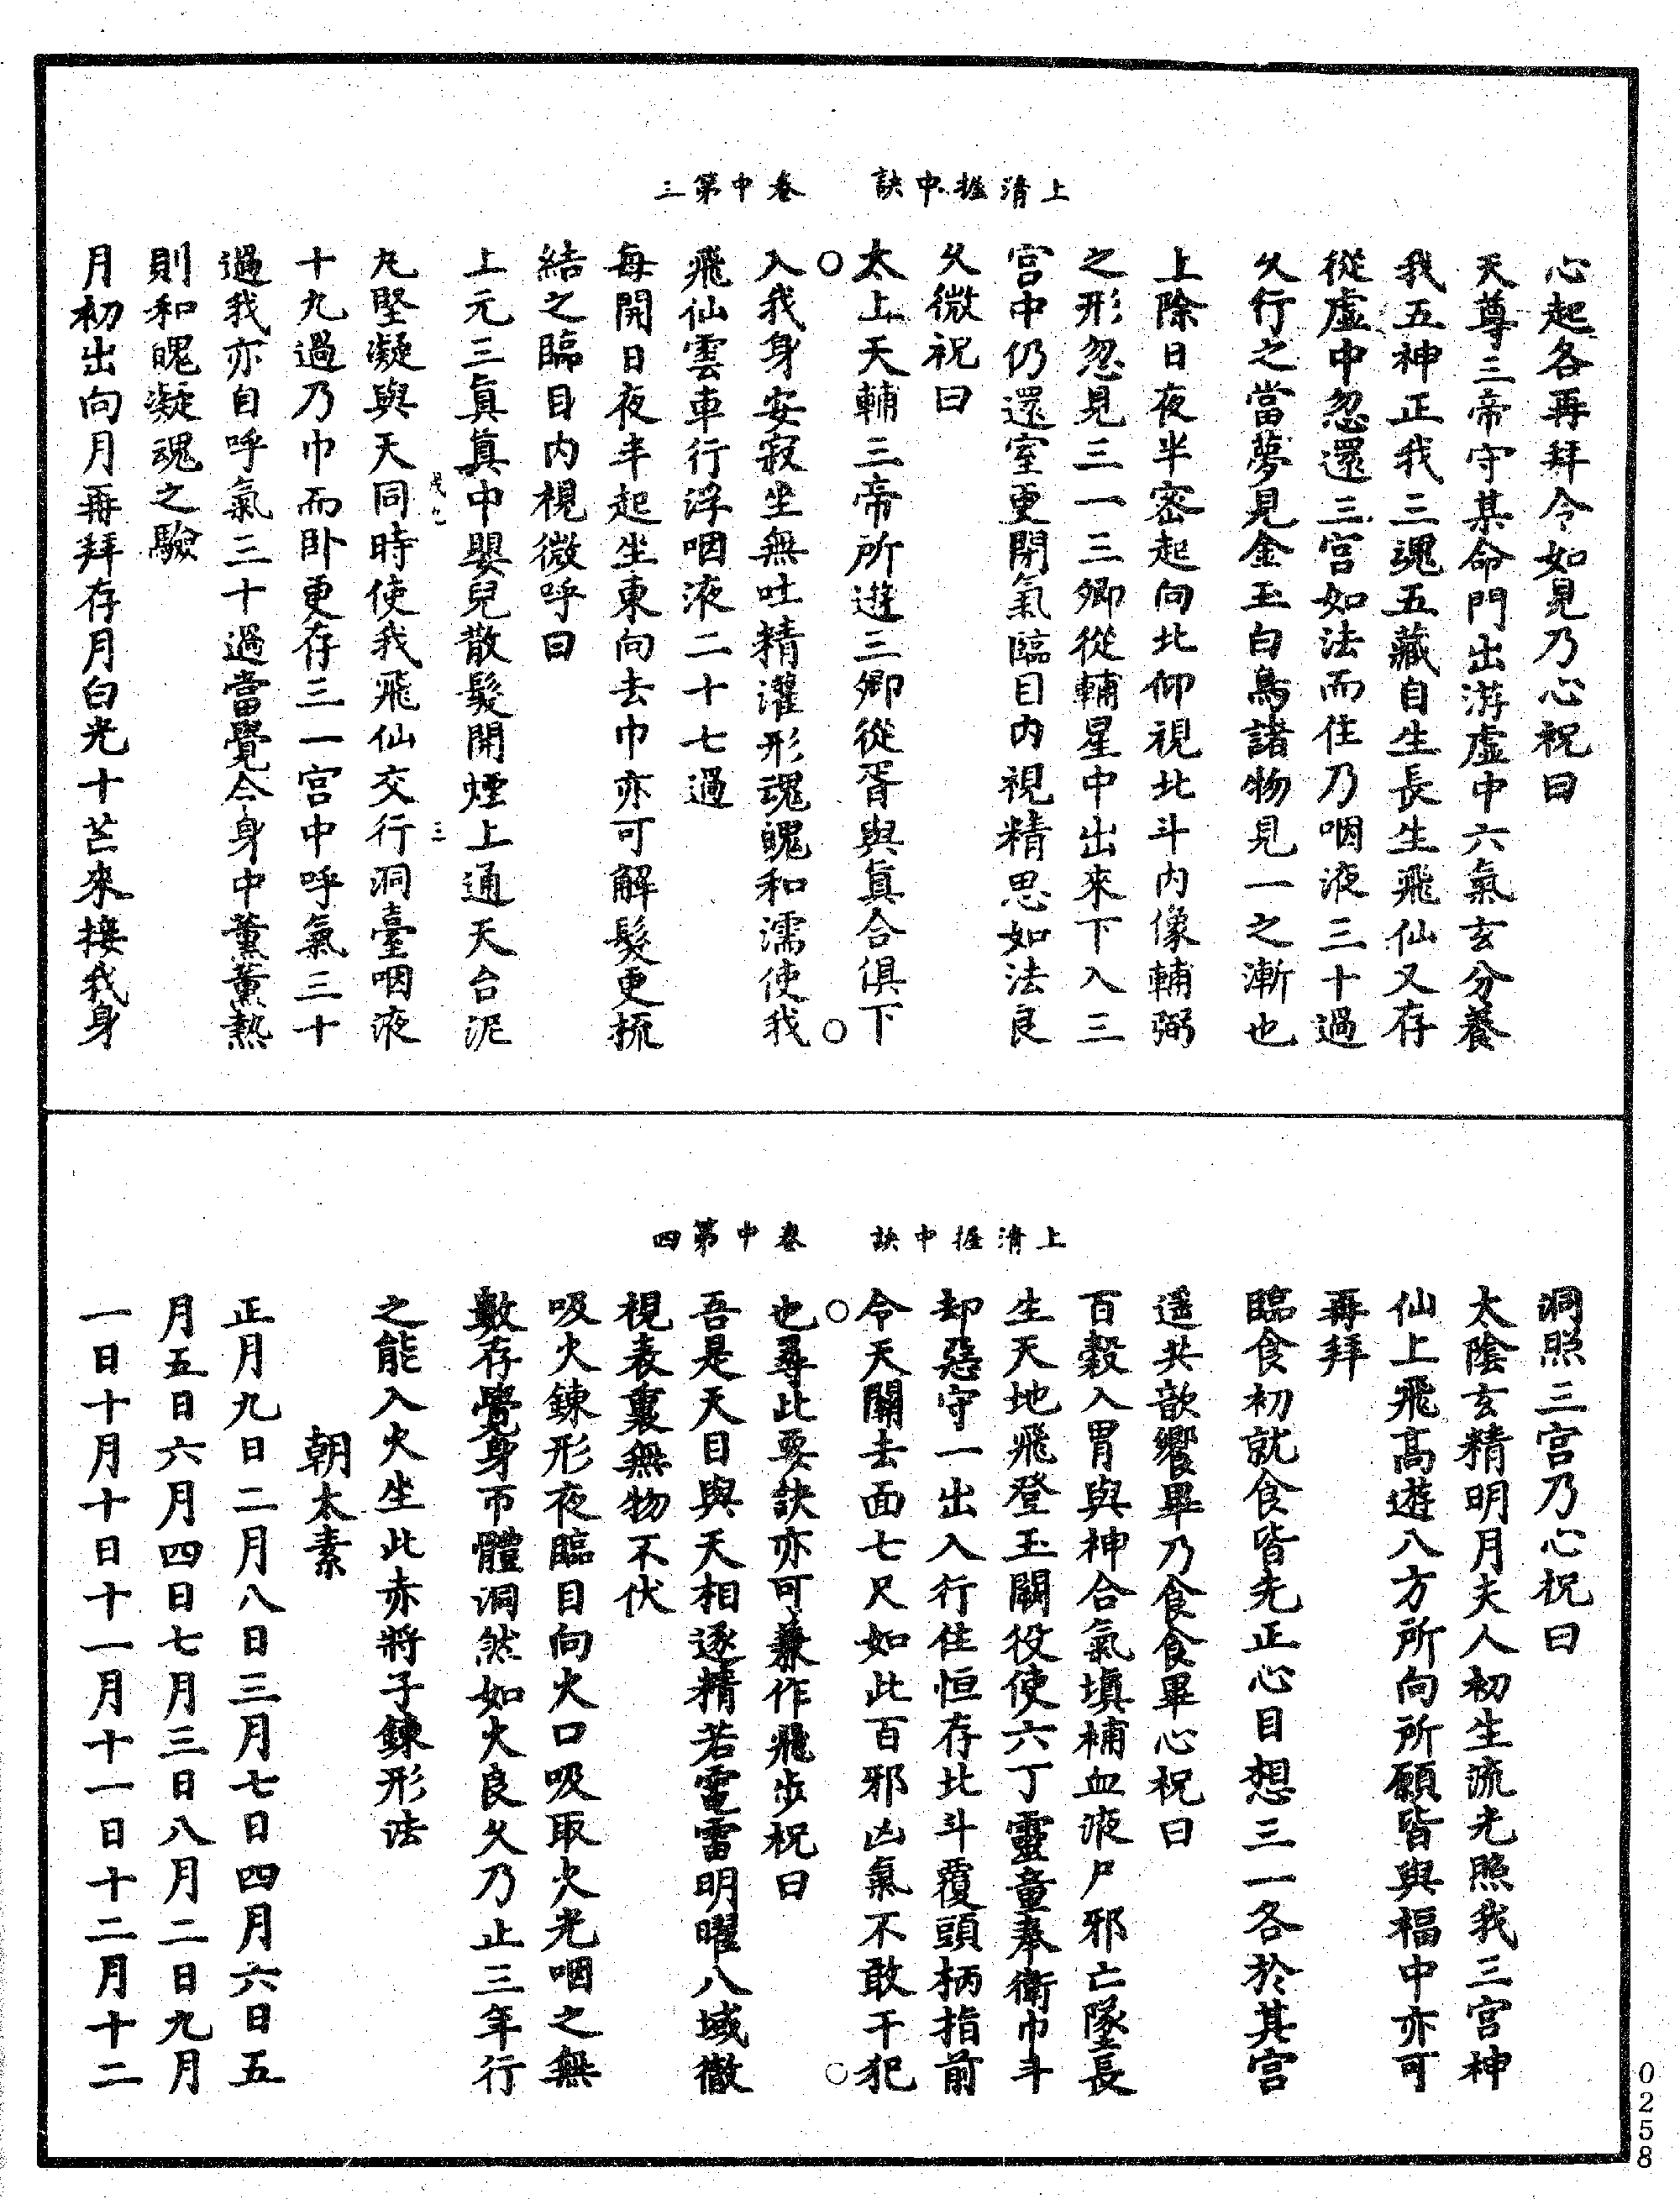 上清握中訣　卷中第三
心起各再拜令如見乃心祝曰
天尊三帝守某命門出游虛中六氣玄分養
我五神正我三魂五藏自生長生飛仙又存
從虛中忽還三宮如法而住乃咽液三十過
久行之當夢見金玉白鳥諸物見一之漸也
上除日夜半密起向北仰視北斗内像輔弼
之形忽見三一三卿從輔星中出來下入三
宮中仍還室更閉氣臨目内視精思如法良
久微祝曰
○太上天輔三帝所遊三卿從胥與眞合俱下○
入我身安寂坐無吐精濯形魂魄和濡使我
飛仙雲車行浮咽液二十七過
每開日夜半起坐東向去巾亦可解髮更梳
結之臨目内視微呼曰
上元三眞眞中嬰兒散髮開煙上通天台泥
戊九　三
丸堅凝與天同時使我飛仙交行洞臺咽液
十九過乃巾而卧更存三一宮中呼氣三十
過我亦自呼氣三十過當覺令身中薰薰熱
則和魄凝魂之驗
月初出向月再拜存月白光十芒來接我身
上清握中訣　卷中第四
洞照三宮乃心祝曰
太陰玄精明月夫人初生流光照我三宮神
仙上飛高遊八方所向所願皆與福中亦可
再拜
臨食初就食皆先正心目想三一各於其宮
遥共歆饗畢乃食食畢心祝曰
百穀入胃與神合氣塡補血液尸邪亡墜長
生天地飛登玉闕役使六丁靈童奉衛巾斗
却惡守一出入行住恒存北斗覆頭柄指前
○令天關去面七尺如此百邪凶氣不敢干犯○
也尋此要訣亦可兼作飛步祝曰
吾是天目與天相逐精若雷電明曜八域徹
視表裏無物不伏
吸火鍊形夜臨目向火口吸取火光咽之無
數存覺身帀體洞然如火良久乃止三年行
之能入火坐此赤將子鍊形法
朝太素
正月九日二月八日三月七日四月六日五
月五日六月四日七月三日八月二日九月
一日十月十日十一月十一日十二月十二
0258